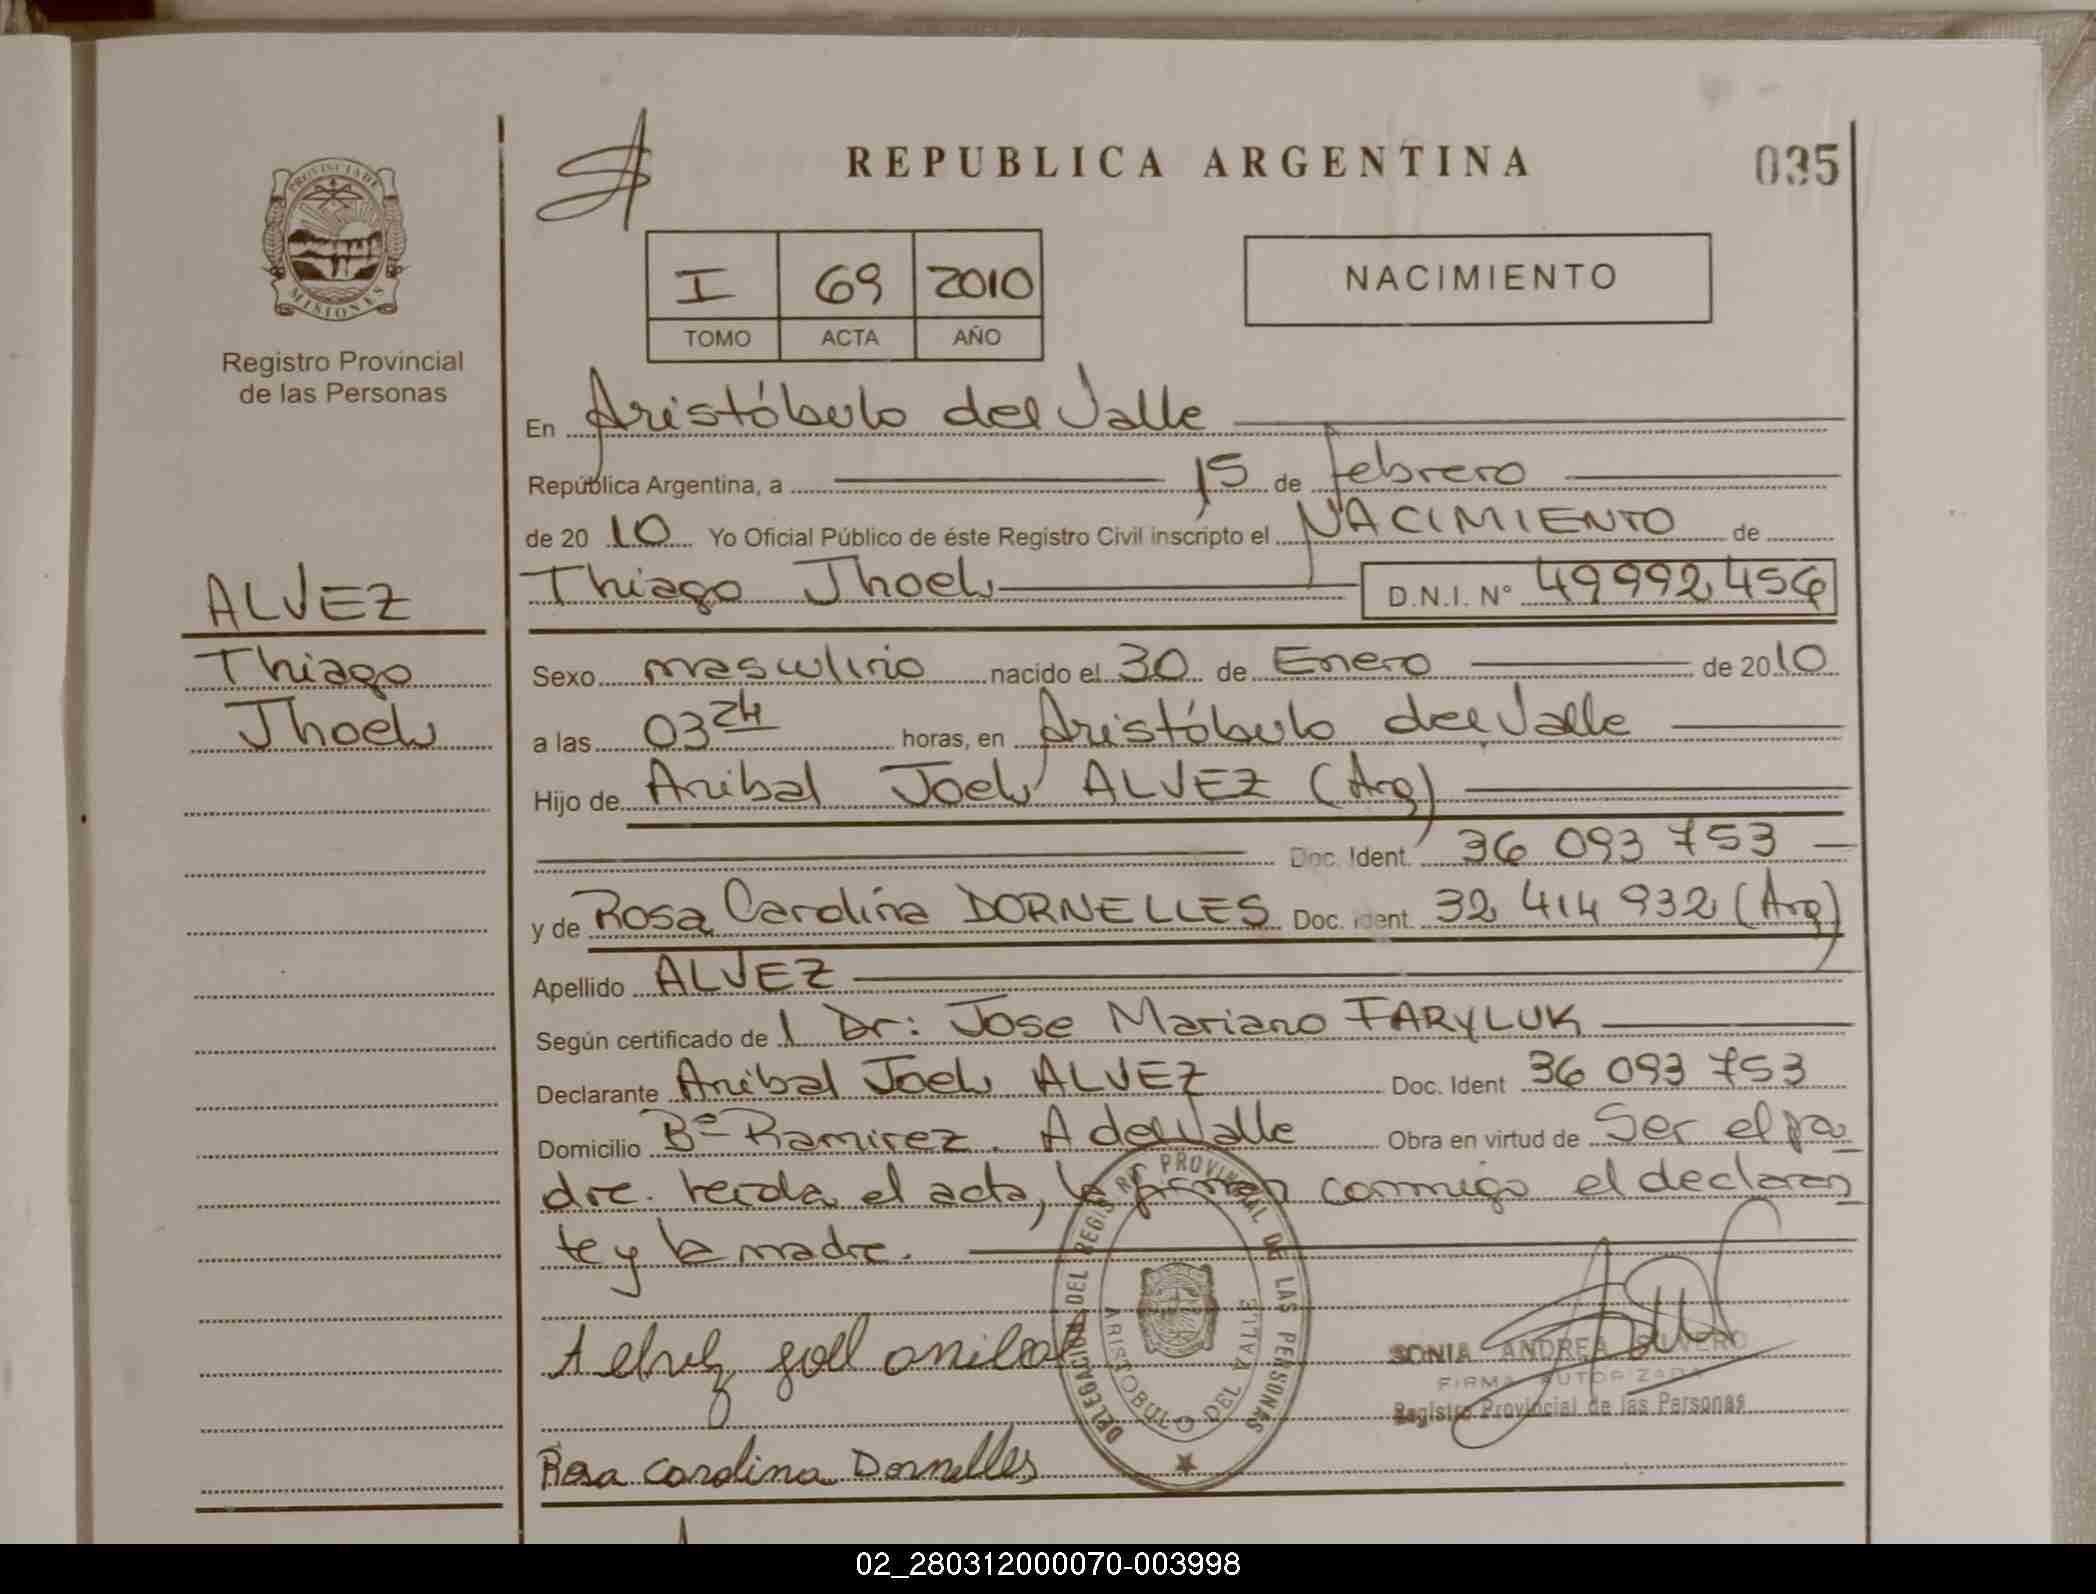 REPUBLICA ARGENTINA
035
PROVINCIA DE
MISIONES
Registro Provincial
de las Personas
I 69 2010
TOMO ACTA AÑO
NACIMIENTO
En Aristóbulo del Valle
República Argentina, a 15 de febrero
de 2010 Yo Oficial Público de éste Registro Civil inscripto el NACIMIENTO de
Thiago Jhoel D.N.I. Nº 49992456
ALVEZ
Thiago
Jhoel
Sexo masculino nacido el 30 de Enero de 2010
a las 03 24 horas, en Aristóbulo del Valle
Hijo de Anibal Joel ALVEZ (Arg)
Doc. Ident. 36 093 753
y de Rosa Carolina DORNELLES Doc. Ident. 32 414 932 (Arg)
Apellido ALVEZ
Según certificado de l Dr: Jose Mariano FARYLUK
Declarante Anibal Joel ALVEZ Doc. Ident 36 093 753
Domicilio Bº Ramirez. A del Valle Obra en virtud de Ser el pa
dre. Leida el acta, la firman conmigo el declaran
te y la madre.
DELEGACION DEL REGISTRO PROVINCIAL DE LAS PERSONAS
ARISTOBULO DEL VALLE
SONIA ANDREA
FIRMA AUTORIZADA
Registro Provincial de las Personas
Rosa Carolina Dornelles
02_280312000070-003998